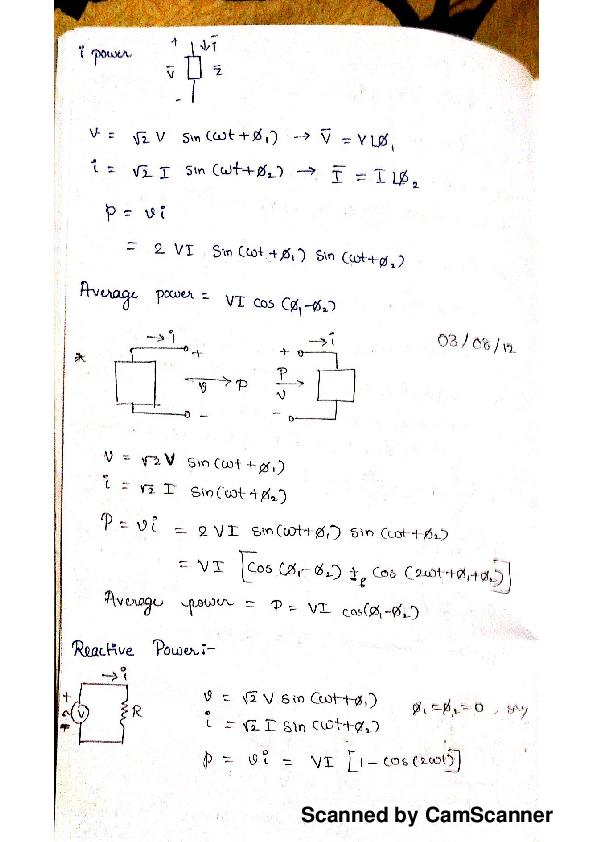 i power
+ ↓ī
v̄ z̄
-
v = √2 V sin(ωt+ø₁) → V̄ = V∟ø₁
i = √2 I sin(ωt+ø₂) → Ī = I∟ø₂
p = vi
= 2 VI sin(ωt+ø₁) sin(ωt+ø₂)
Average power = VI cos(ø₁-ø₂)
03/08/12
* → i + v → P -
→ i + P v -
v = √2 V sin(ωt+ø₁)
i = √2 I sin(ωt+ø₂)
P = vi = 2 VI sin(ωt+ø₁) sin(ωt+ø₂)
= VI [cos(ø₁-ø₂) cos(2ωt+ø₁+ø₂)]
Average power = P = VI cos(ø₁-ø₂)
Reactive Power:-
→ i
+ V R
v = √2 V sin(ωt+ø₁) ø₁=ø₂=0, say
i = √2 I sin(ωt+ø₂)
p = vi = VI [1-cos(2ωt)]
Scanned by CamScanner